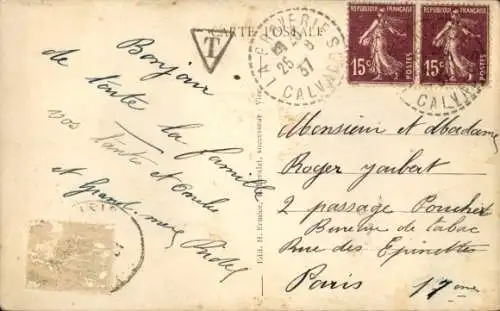 CARTE POSTALE
T
PRESLES
CALVADOS
25
9
37
REPUBLIQUE FRANÇAISE
15c
POSTES
REPUBLIQUE FRANÇAISE
15c
POSTES
CALVA
Bonjour
de toute la famille
vos Tante et Oncle
et Grand-mère
Edit. H. successeur
Monsieur et Madame
Roger Joubert
2 passage Pouchet
Bureau de tabac
Rue des Epinettes
Paris 17eme